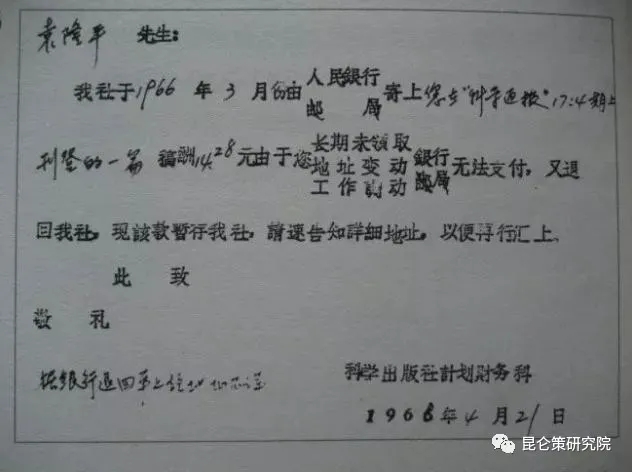 袁隆平 先生:
我社于1966年3月份由人民銀行郵局寄上您在"科学通报"17:4期上
刊登的一篇稿酬14.28元由于您长期未領取地址变动工作調动銀行郵局无法支付,又退
回我社,现該款暂存我社,請速告知詳細地址,以便再行汇上、
此致
敬礼
据銀行退回
科学出版社計划財务科
1966年4月21日
昆仑策研究院